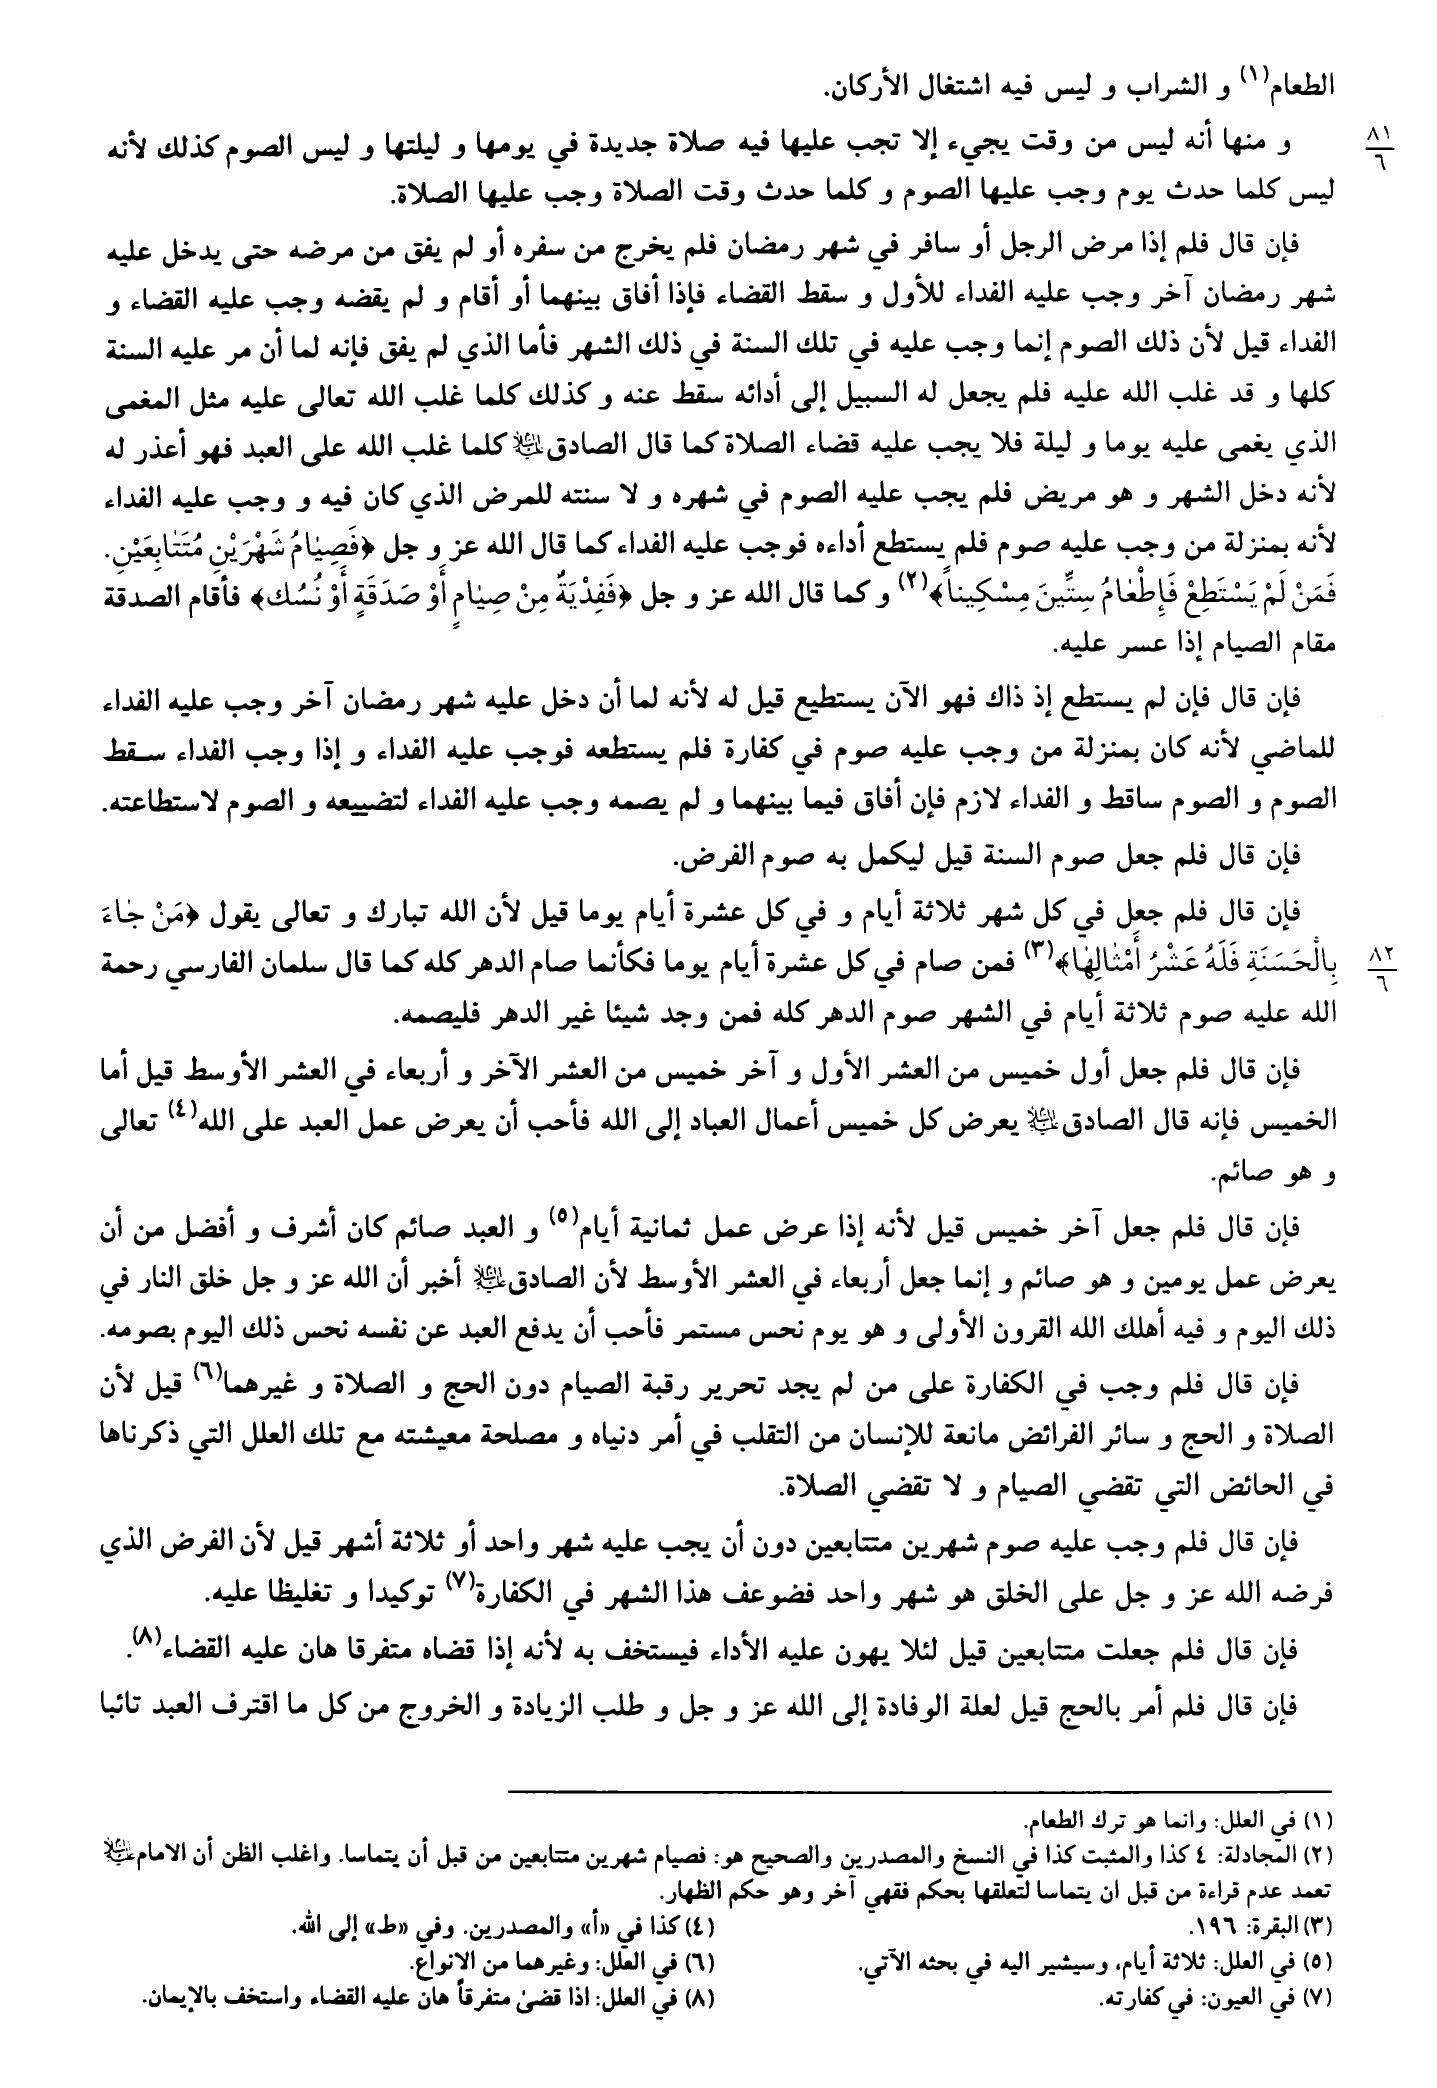 الطعام(١) و الشراب و ليس فيه اشتغال الأركان.
٨١
٦
و منها أنه ليس من وقت يجيء إلا تجب عليها فيه صلاة جديدة في يومها و ليلتها و ليس الصوم كذلك لأنه
ليس كلما حدث يوم وجب عليها الصوم و كلما حدث وقت الصلاة وجب عليها الصلاة.
فإن قال فلم إذا مرض الرجل أو سافر في شهر رمضان فلم يخرج من سفره أو لم يفق من مرضه حتى يدخل عليه
شهر رمضان آخر وجب عليه الفداء للأول و سقط القضاء فإذا أفاق بينهما أو أقام و لم يقضه وجب عليه القضاء و
الفداء قيل لأن ذلك الصوم إنما وجب عليه في تلك السنة في ذلك الشهر فأما الذي لم يفق فإنه لما أن مر عليه السنة
كلها و قد غلب الله عليه فلم يجعل له السبيل إلى أدائه سقط عنه و كذلك كلما غلب الله تعالى عليه مثل المغمى
الذي يغمى عليه يوما و ليلة فلا يجب عليه قضاء الصلاة كما قال الصادق عليه السلام كلما غلب الله على العبد فهو أعذر له
لأنه دخل الشهر و هو مريض فلم يجب عليه الصوم في شهره و لا سنته للمرض الذي كان فيه و وجب عليه الفداء
لأنه بمنزلة من وجب عليه صوم فلم يستطع أداءه فوجب عليه الفداء كما قال الله عز و جل ﴿فَصِيٰامُ شَهْرَيْنِ مُتَتٰابِعَيْنِ.
فَمَنْ لَمْ يَسْتَطِعْ فَإِطْعٰامُ سِتِّينَ مِسْكِيناً﴾(٢) و كما قال الله عز و جل ﴿فَفِدْيَةٌ مِنْ صِيٰامٍ أَوْ صَدَقَةٍ أَوْ نُسُك﴾ فأقام الصدقة
مقام الصيام إذا عسر عليه.
فإن قال فإن لم يستطع إذ ذاك فهو الآن يستطيع قيل له لأنه لما أن دخل عليه شهر رمضان آخر وجب عليه الفداء
للماضي لأنه كان بمنزلة من وجب عليه صوم في كفارة فلم يستطعه فوجب عليه الفداء و إذا وجب الفداء سقط
الصوم و الصوم ساقط و الفداء لازم فإن أفاق فيما بينهما و لم يصمه وجب عليه الفداء لتضييعه و الصوم لاستطاعته.
فإن قال فلم جعل صوم السنة قيل ليكمل به صوم الفرض.
فإن قال فلم جعل في كل شهر ثلاثة أيام و في كل عشرة أيام يوما قيل لأن الله تبارك و تعالى يقول ﴿مَنْ جٰاءَ
بِالْحَسَنَةِ فَلَهُ عَشْرُ أَمْثٰالِهٰا﴾(٣) فمن صام في كل عشرة أيام يوما فكأنما صام الدهر كله كما قال سلمان الفارسي رحمة
٨٢
٦
الله عليه صوم ثلاثة أيام في الشهر صوم الدهر كله فمن وجد شيئا غير الدهر فليصمه.
فإن قال فلم جعل أول خميس من العشر الأول و آخر خميس من العشر الآخر و أربعاء في العشر الأوسط قيل أما
الخميس فإنه قال الصادق عليه السلام يعرض كل خميس أعمال العباد إلى الله فأحب أن يعرض عمل العبد على الله(٤) تعالى
و هو صائم.
فإن قال فلم جعل آخر خميس قيل لأنه إذا عرض عمل ثمانية أيام(٥) و العبد صائم كان أشرف و أفضل من أن
يعرض عمل يومين و هو صائم و إنما جعل أربعاء في العشر الأوسط لأن الصادق عليه السلام أخبر أن الله عز و جل خلق النار في
ذلك اليوم و فيه أهلك الله القرون الأولى و هو يوم نحس مستمر فأحب أن يدفع العبد عن نفسه نحس ذلك اليوم بصومه.
فإن قال فلم وجب في الكفارة على من لم يجد تحرير رقبة الصيام دون الحج و الصلاة و غيرهما(٦) قيل لأن
الصلاة و الحج و سائر الفرائض مانعة للإنسان من التقلب في أمر دنياه و مصلحة معيشته مع تلك العلل التي ذكرناها
في الحائض التي تقضي الصيام و لا تقضي الصلاة.
فإن قال فلم وجب عليه صوم شهرين متتابعين دون أن يجب عليه شهر واحد أو ثلاثة أشهر قيل لأن الفرض الذي
فرضه الله عز و جل على الخلق هو شهر واحد فضوعف هذا الشهر في الكفارة(٧) توكيدا و تغليظا عليه.
فإن قال فلم جعلت متتابعين قيل لئلا يهون عليه الأداء فيستخف به لأنه إذا قضاه متفرقا هان عليه القضاء(٨).
فإن قال فلم أمر بالحج قيل لعلة الوفادة إلى الله عز و جل و طلب الزيادة و الخروج من كل ما اقترف العبد تائبا
(١) في العلل: وانما هو ترك الطعام.
(٢) المجادلة: ٤ كذا والمثبت كذا في النسخ والمصدرين والصحيح هو: فصيام شهرين متتابعين من قبل أن يتماسا. واغلب الظن أن الامام عليه السلام
تعمد عدم قراءة من قبل ان يتماسا لتعلقها بحكم فقهي آخر وهو حكم الظهار.
(٣) البقرة: ١٩٦.
(٤) كذا في «أ» والمصدرين. وفي «ط» إلى الله.
(٥) في العلل: ثلاثة أيام، وسيشير اليه في بحثه الآتي.
(٦) في العلل: وغيرهما من الانواع.
(٧) في العيون: في كفارته.
(٨) في العلل: اذا قضىٰ متفرقاً هان عليه القضاء واستخف بالإيمان.